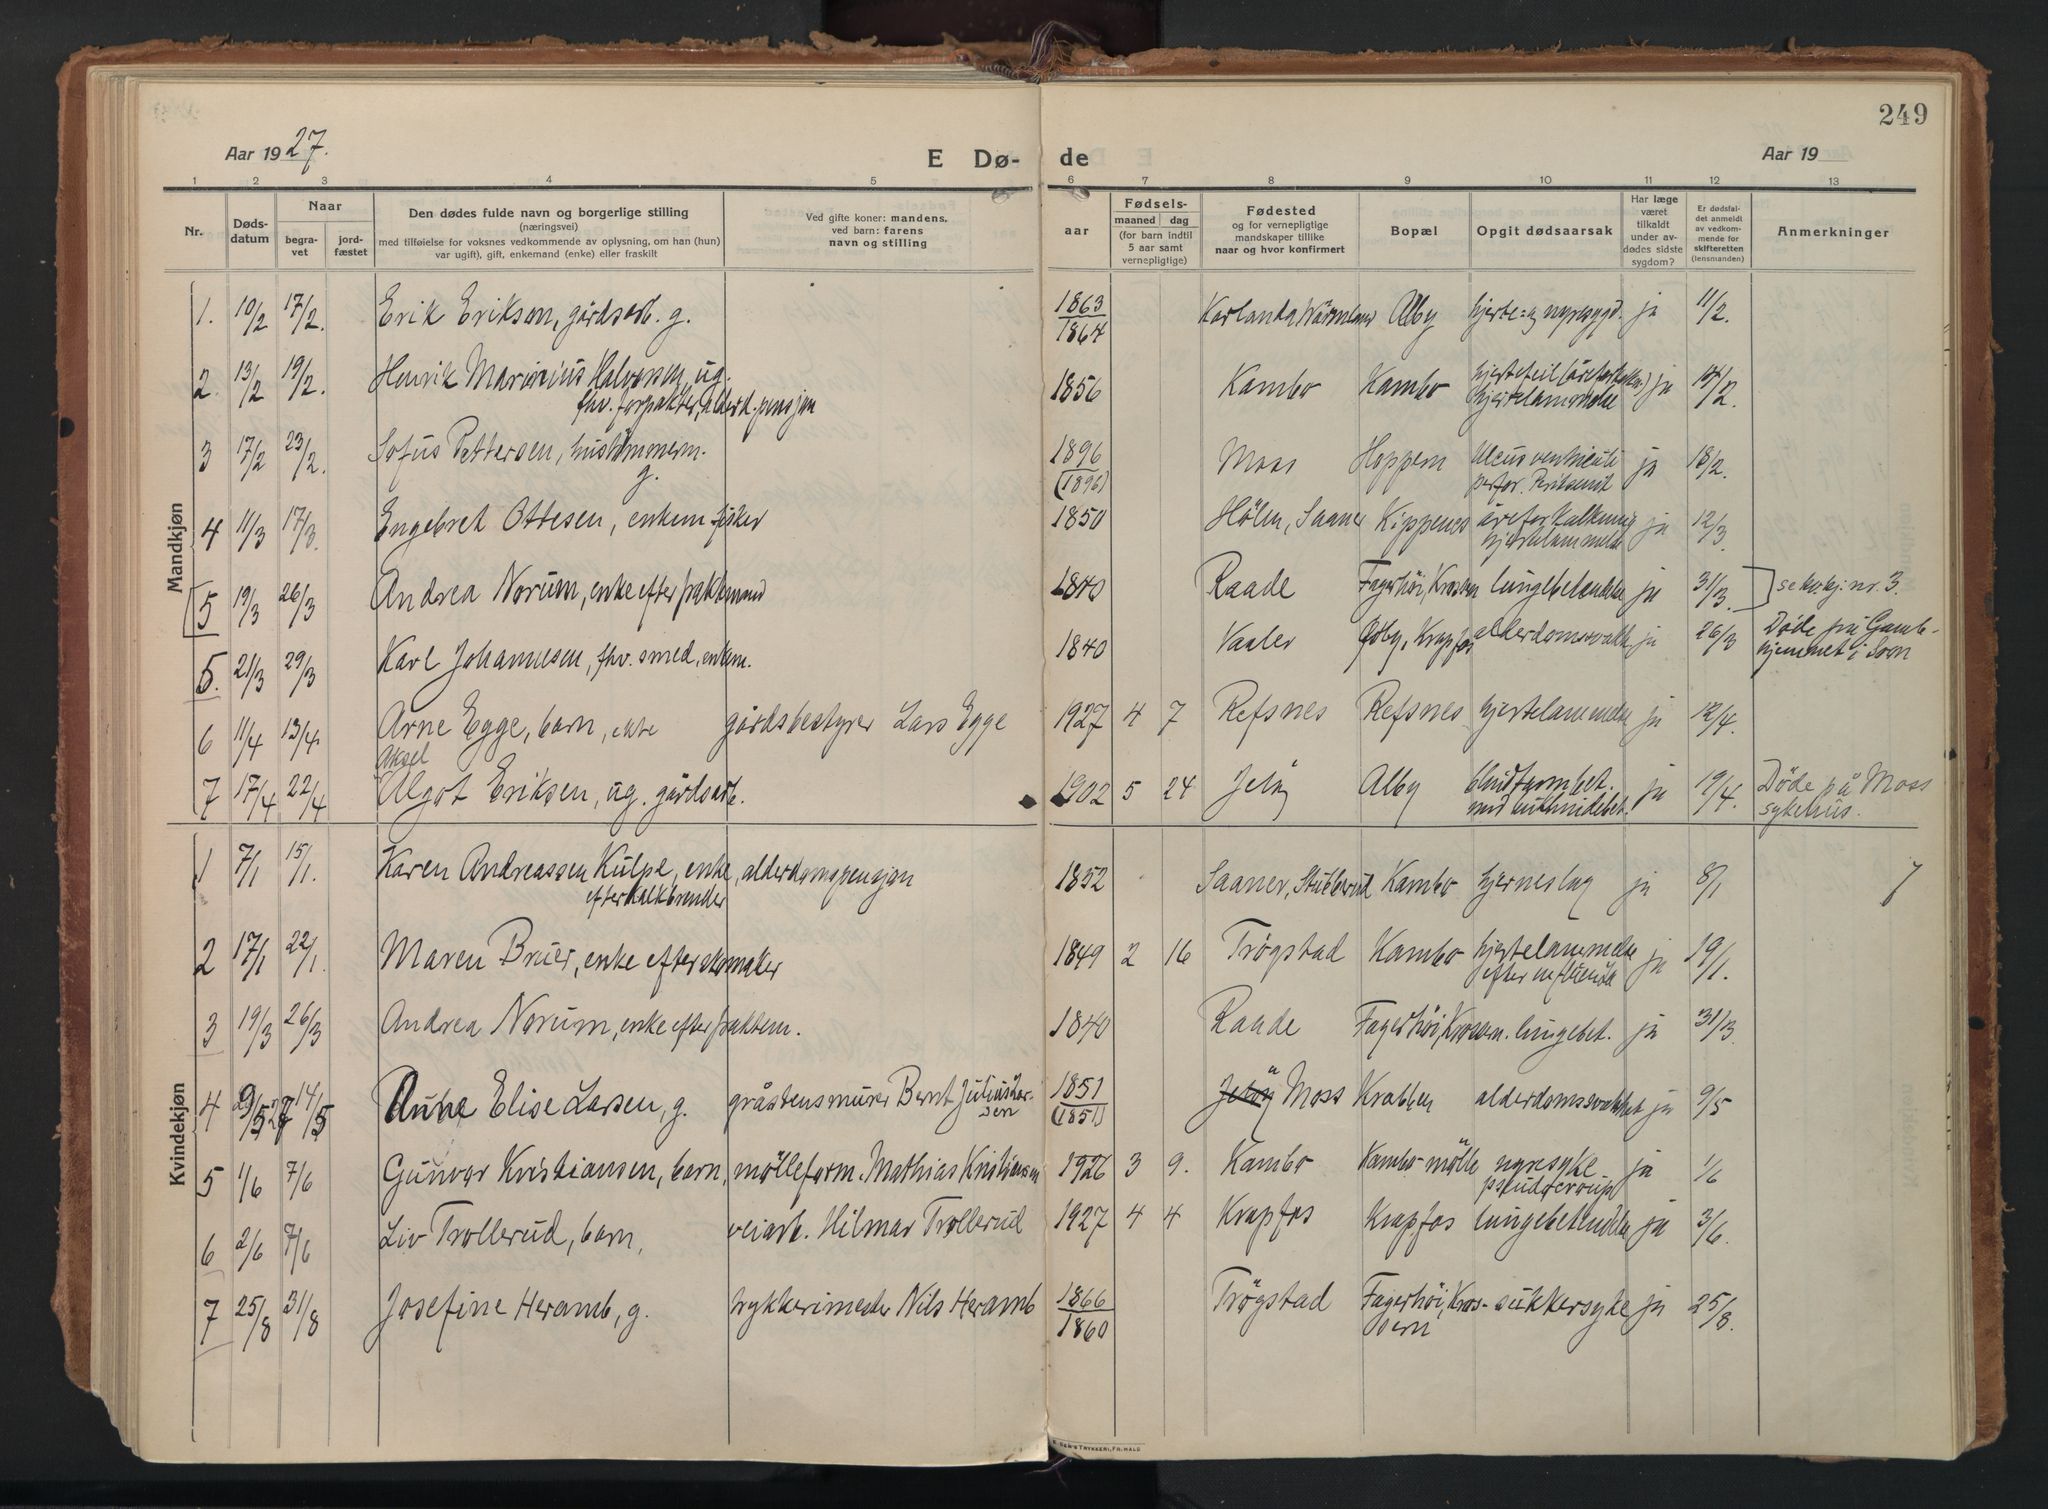 249
Aar 1927. E Dø- de Aar 19
1 2 3 4 5 6 7 8 9 10 11 12 13
Nr. Døds-datum Naar begra-vet jord-fæstet Den dødes fulde navn og borgerlige stilling (næringsvei) med tilføielse for voksnes vedkommende av oplysning, om han (hun) var ugift), gift, enkemand (enke) eller fraskilt Ved gifte koner: mandens, ved barn: farens navn og stilling aar Fødsels- maaned dag (for barn indtil 5 aar samt vernepligtige) Fødested og for vernepligtige mandskaper tillike naar og hvor konfirmert Bopæl Opgit dødsaarsak Har læge været tilkaldt under av-dødes sidste sygdom? Er dødsfal-det anmeldt av vedkom-mende for skifteretten (lensmanden) Anmerkninger
Mandkjøn
1. 10/2 17/2. Erik Eriksen, gårdsarb. g. 1863 1864 Karlanda, Wärmland Alby hjerte- og nyresygd. ja 11/2.
2. 13/2 19/2. Henrik Marinius Halvorsen, ug. 1856 Kambo Kambo hjertefeil (åreforkalkn.) ja /2.
fhv. forpakter, alderd. pensjon hjertelammelse
3 17/2 23/2. Sofus Pettersen, hustømmerm. 1896 Moss Hoppern Ulcus ventriculi ja 18/2.
g. (1896) perfor. Peritonit
4 11/3 17/3. Engebret Ottesen, enkem. fisker 1850 Hølen, Saaner Kippenes åreforkalkning ja 12/3.
hjertelammelse
5 19/3 26/3 Andrea Norum, enke efter pakkmand 1840 Raade Fagerhøi, Krossern lungebetændelse ja 31/3. se kv.kj. nr. 3.
5. 21/3 29/3 Karl Johannesen, fhv. smed, enkem. 1840 Vaaler Østby, Krapfos alderdomssvakh. ja 26/3 Døde på Gamle-
hjemmet i Son
6 11/4 13/4. Arne Egge, barn, ekte gårdsbestyrer Lars Egge 1927 4 7 Refsnes Refsnes hjertelammelse ja 12/4.
Aksel
7 17/4 22/4 Algot Eriksen, ug. gårdsarb. 1902 5 24 Jeløy Alby blindtarmbet. ja 19/4. Døde på Moss
med bukhindebet. sykehus.
Kvindekjøn
1 7/1 15/1. Karen Andreassen Kulpe, enke, alderdomspensjon 1852 Saaner, Stubberud Kambo hjerneslag ja 8/1
efter kalkbrender
2 17/1 22/1. Maren Bruer, enke efter skomaker 1849 2 16 Trøgstad Kambo hjertelammelse ja 19/1.
efter influensa
3 19/3 26/3 Andrea Norum, enke efter pakkem. 1840 Raade Fagerhøi, Krossern. lungebet. ja 31/3.
4 9/5 27 14/5 Anna Elise Larsen, g. gråstensmurer Bernt Julius Lar- 1851 Jeløy Moss Krabben alderdomssvakhet ja 9/5
sen (1851)
5 1/6 7/6 Gunvor Kristiansen, barn, mølleform. Mathias Kristiansen 1926 3 9. Kambo Kambo mølle nyresyke ja 1/6
pseudocroup
6 2/6 7/6 Liv Trollerud, barn, veiarb. Hilmar Trollerud 1927 4 4 Krapfos Krapfos lungebetændelse ja 3/6.
7 25/8 31/8 Josefine Heramb, g. trykkerimester Nils Heramb 1866 1860 Trøgstad Fagerhøi, Kros- sukkersyke ja 25/8.
sern
TRYKKERI, FR.HALD